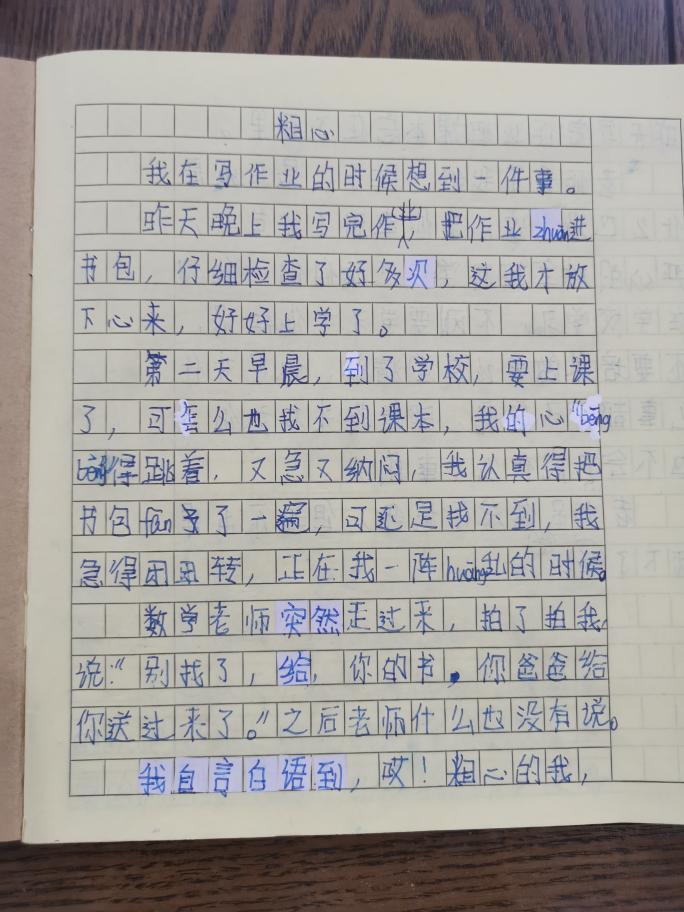 粗心
我在写作业的时候想到一件事。
昨天晚上我写完作业，把作业zhuāng进
书包，仔细检查了好多次，这我才放
下心来，好好上学了。
第二天早晨，到了学校，要上课
了，可怎么也找不到课本，我的心“bēng
bēng得跳着，又急又纳闷，我认真得把
书包fān了一遍，可还是找不到，我
急得团团转，正在我一阵huāng乱的时候。
数学老师突然走过来，拍了拍我，
说：“别找了，给，你的书，你爸爸给
你送过来了。”之后老师什么也没有说。
我自言自语到，哎！粗心的我，